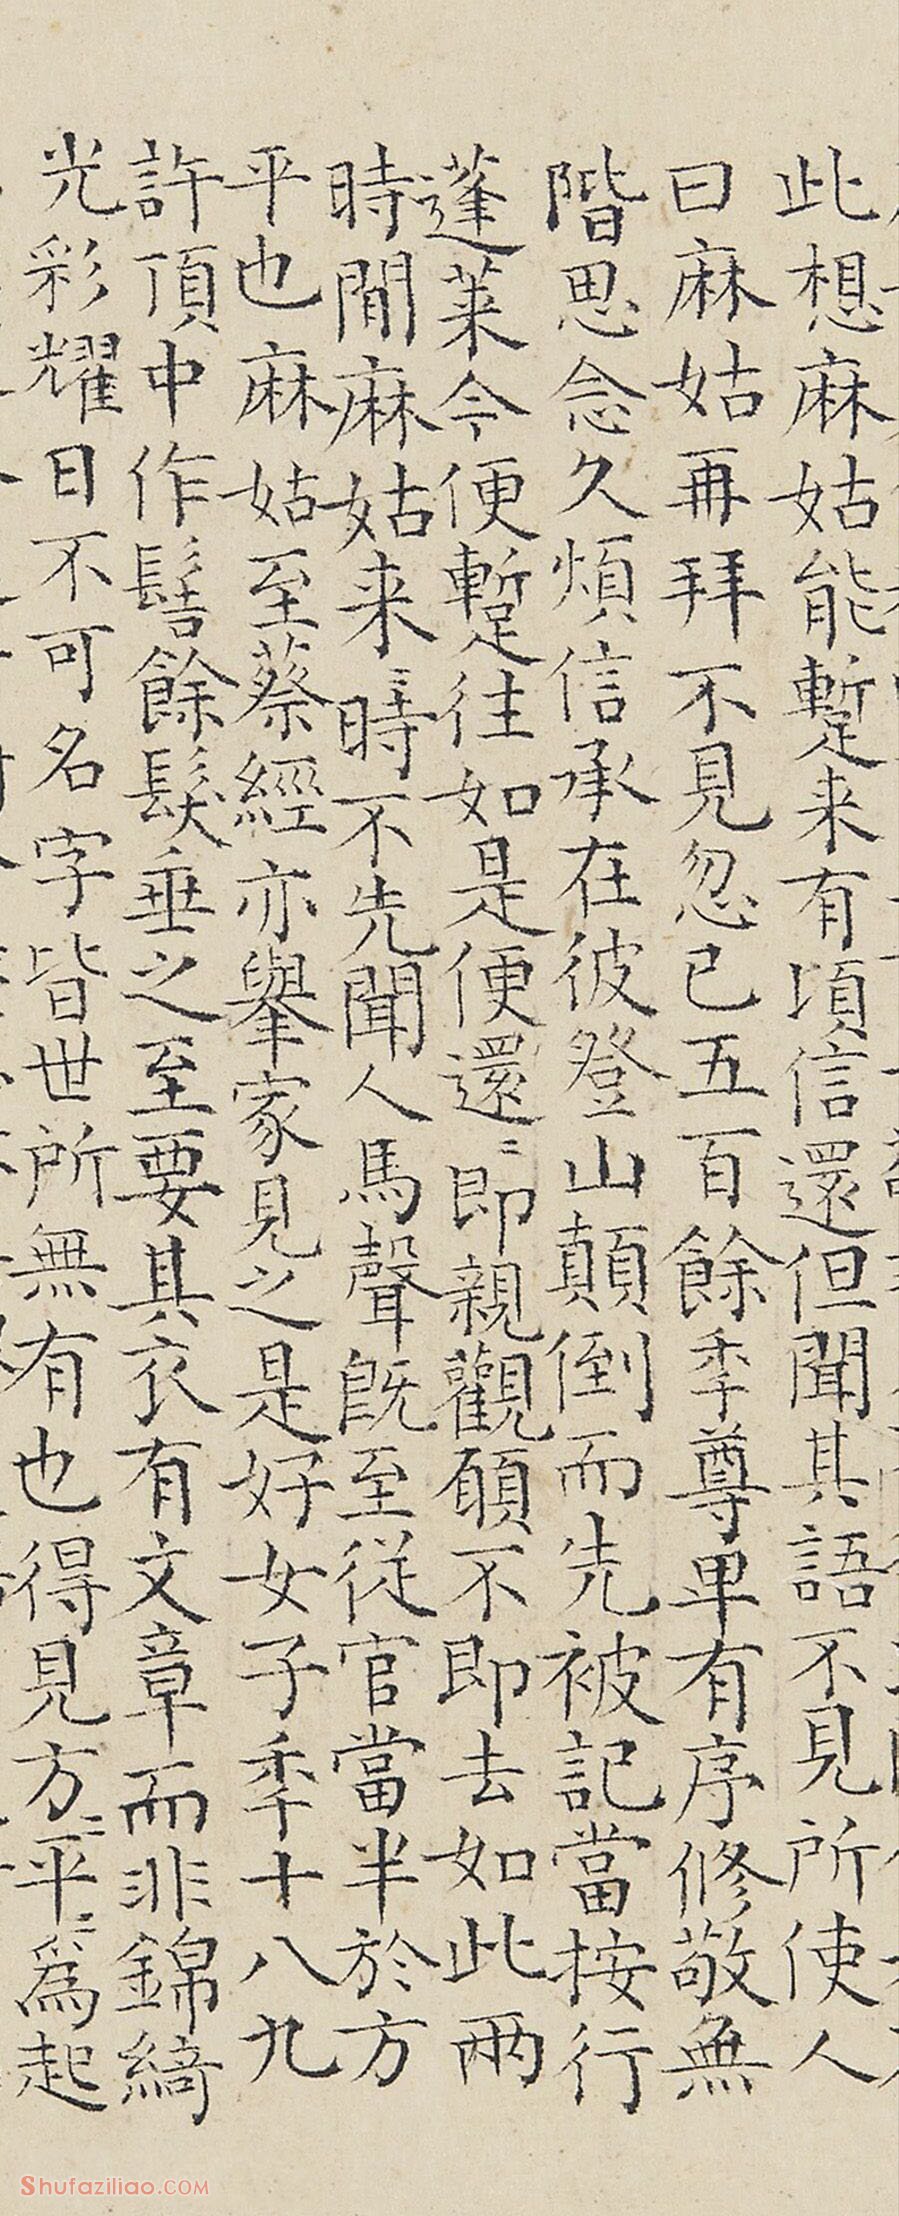 此想麻姑能蹔来有頃信還但聞其語不見所使人
曰麻姑再拜不見忽已五百餘秊尊卑有序修敬無
階思念久煩信承在彼登山顛倒而先被記當按行
蓬莱今便蹔往如是便還〻即親觀願不即去如此兩
時間麻姑来〻時不先聞人馬聲既至從官當半於方
平也麻姑至蔡經亦舉家見之是好女子秊十八九
許頂中作髻餘髮垂之至要其衣有文章而非錦綺
光彩耀日不可名字皆世所無有也得見方〻平〻爲起
Shufaziliao.COM